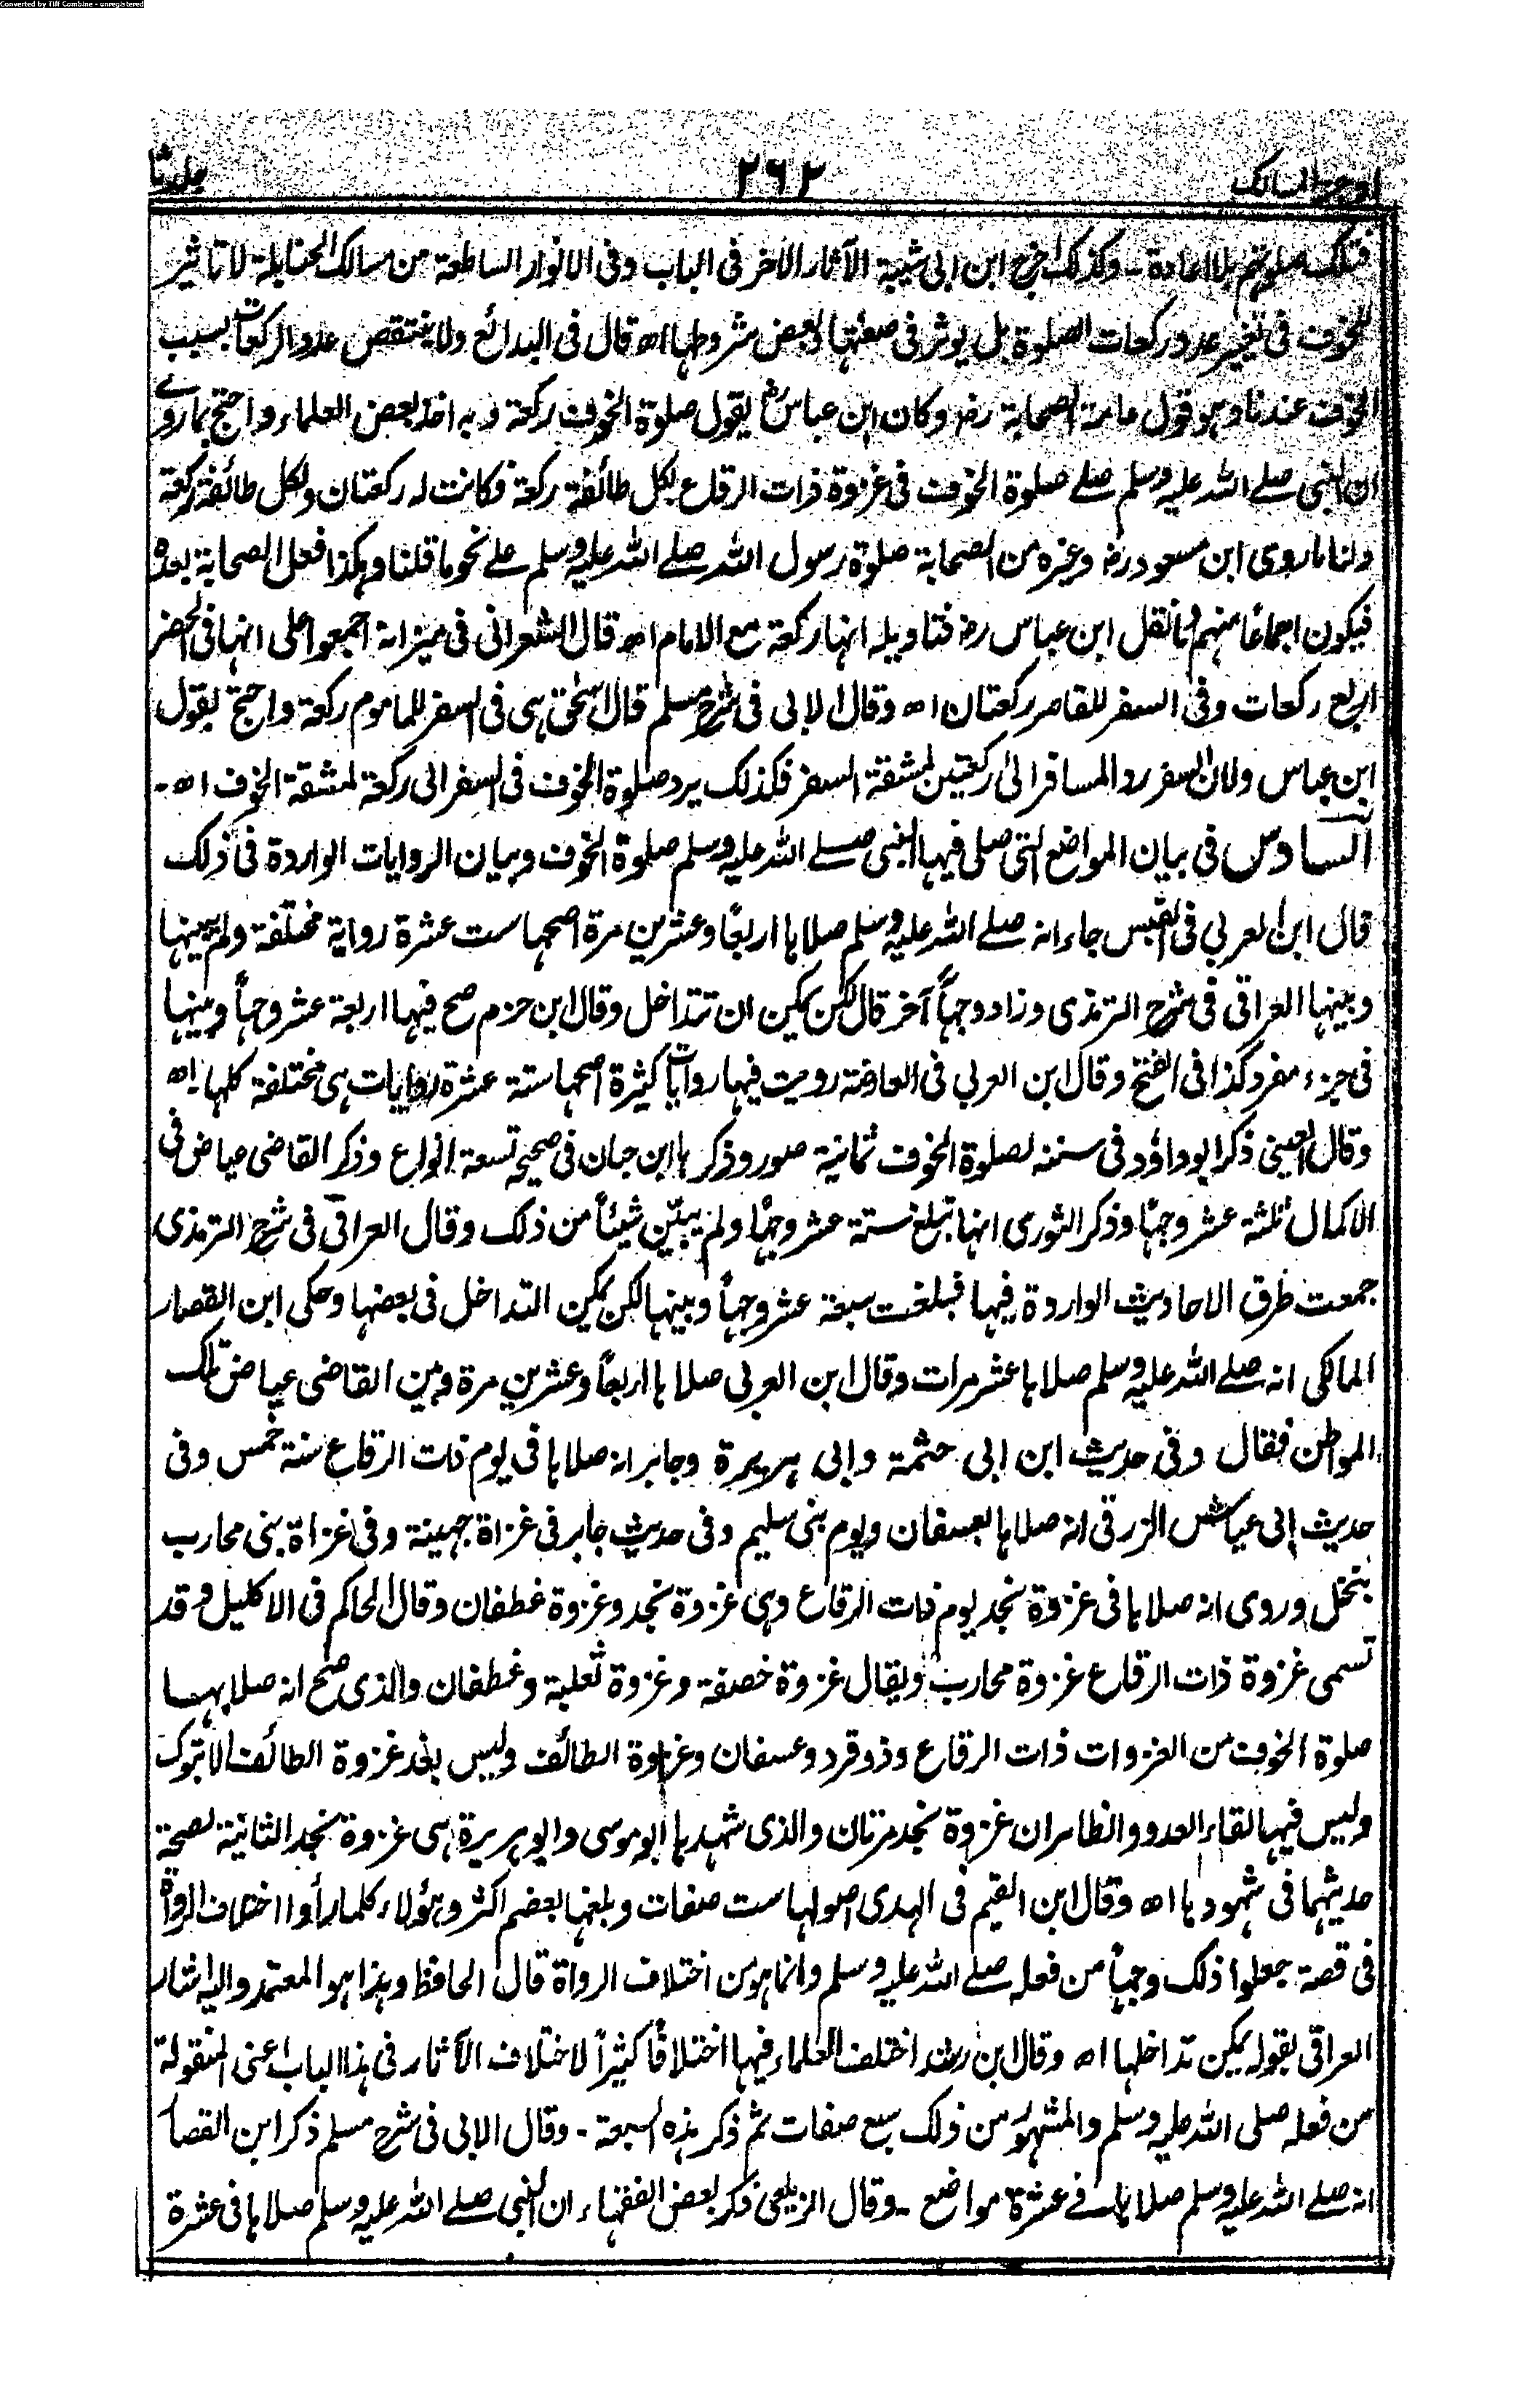 Converted by Tiff Combine - unregistered
اوجز المسالك ٢٦٢ جلد ثا
فتلك صلوتهم بلا اعادة - وكذلك اخرج ابن ابى شيبة الآثار الاخر فى الباب وفى الانوار الساطعة من مسالك الحنابلة لا تاثير
للخوف فى تغيير عدد ركعات الصلوة بل يوثر فى صفتها او بعض شروطها اھ قال فى البدائع ولا ينتقص عدد الركعات بسبب
الخوف عندنا وهو قول عامة الصحابة رض وكان ابن عباس رض يقول صلوة الخوف ركعة وبه اخذ بعض العلماء واحتج بما روے
ان النبى صلے الله عليه وسلم صلے صلوة الخوف فى غزوة ذات الرقاع لكل طائفة ركعة فكانت له ركعتان ولكل طائفة ركعة
ولنا ما روى ابن مسعود رض وغيره من الصحابة صلوة رسول الله صلے الله عليه وسلم علے نحو ما قلنا وهكذا فعل الصحابة بعده
فيكون اجماعًا منهم وما نقل ابن عباس رض فتاويله انها ركعة مع الامام اھ قال الشعرانى فى ميزانه اجمعوا على انها فى الحضر
اربع ركعات وفى السفر للقاصر ركعتان اھ وقال الابى فى شرح مسلم قال اسحٰق هى فى السفر للماموم ركعة واحتج بقول
ابن عباس ولان السفر رد المسافر الى ركعتين لمشقة السفر فكذلك يرد صلوة الخوف فى السفر الى ركعة لمشقة الخوف اھ -
السادس فى بيان المواضع التى صلى فيها النبى صلے الله عليه وسلم صلوة الخوف وبيان الروايات الواردة فى ذلك
قال ابن العربى فى القبس جاء انه صلے الله عليه وسلم صلاها اربعًا وعشرين مرة اصحها ست عشرة رواية مختلفة ولم يبينها
وبينها العراقى فى شرح الترمذى وزاد وجهاً آخر قال لكن يمكن ان تتداخل وقال ابن حزم صح فيها اربعة عشر وجهاً وبينها
فى جزء مفرد كذا فى الفتح وقال ابن العربى فى العارضة رويت فيها روايات كثيرة اصحها ستة عشرة روايات هى مختلفة كلها اھ
وقال العينى ذكر ابوداؤد فى سننه لصلوة الخوف ثمانية صور وذكرها ابن حبان فى صحيحه تسعة انواع وذكر القاضى عياض فى
الاكمال ثلثة عشر وجهًا وذكر النووى انها تبلغ ستة عشر وجهًا ولم يبيّن شيئاً من ذلك وقال العراقى فى شرح الترمذى
جمعت طرق الاحاديث الواردة فيها فبلغت سبعة عشر وجهاً وبينها لكن يمكن التداخل فى بعضها وحكى ابن القصار
المالكى انه صلے الله عليه وسلم صلاها عشر مرات وقال ابن العربى صلاها اربعاً وعشرين مرة وبين القاضى عياض تلك
المواطن فقال وفى حديث ابن ابى حثمة وابى هريرة وجابر انه صلاها فى يوم ذات الرقاع سنة خمس وفى
حديث ابى عياش الزرقى انه صلاها بعسفان ويوم بنى سليم وفى حديث جابر فى غزاة جهينة وفى غزاة بنى محارب
بنخل وروى انه صلاها فى غزوة نجد يوم ذات الرقاع وهى غزوة نجد وغزوة غطفان وقال الحاكم فى الاكليل وقد
تسمى غزوة ذات الرقاع غزوة محارب ويقال غزوة خصفة وغزوة ثعلبة وغطفان والذى صح انه صلا بها
صلوة الخوف من الغزوات ذات الرقاع وذو قرد وعسفان وغزوة الطائف وليس بعد غزوة الطائف الا تبوك
وليس فيها لقاء العدو والظاهر ان غزوة نجد مرتان والذى شهدها ابو موسى وابو هريرة هى غزوة نجد الثانية لصحة
حديثهما فى شهودها اھ وقال ابن القيم فى الهدى اصولها ست صفات وبلغها بعضهم اكثر وهؤلاء كلما رأوا اختلاف الرواة
فى قصة جعلوا ذلك وجهاً من فعله صلے الله عليه وسلم وانما هو من اختلاف الرواة قال الحافظ وهذا هو المعتمد واليه اشار
العراقى بقوله يمكن تداخلها اھ وقال ابن رشد اختلف العلماء فيها اختلافًا كثيراً لاختلاف الآثار فى هذا الباب اعنى المنقولة
من فعله صلى الله عليه وسلم والمشهور من ذلك سبع صفات ثم ذكر هذه السبعة - وقال الابى فى شرح مسلم ذكر ابن القصا
انه صلے الله عليه وسلم صلاها فے عشرة مواضع - وقال الزيلعى ذكر بعض الفقهاء ان النبى صلے الله عليه وسلم صلاها فى عشرة